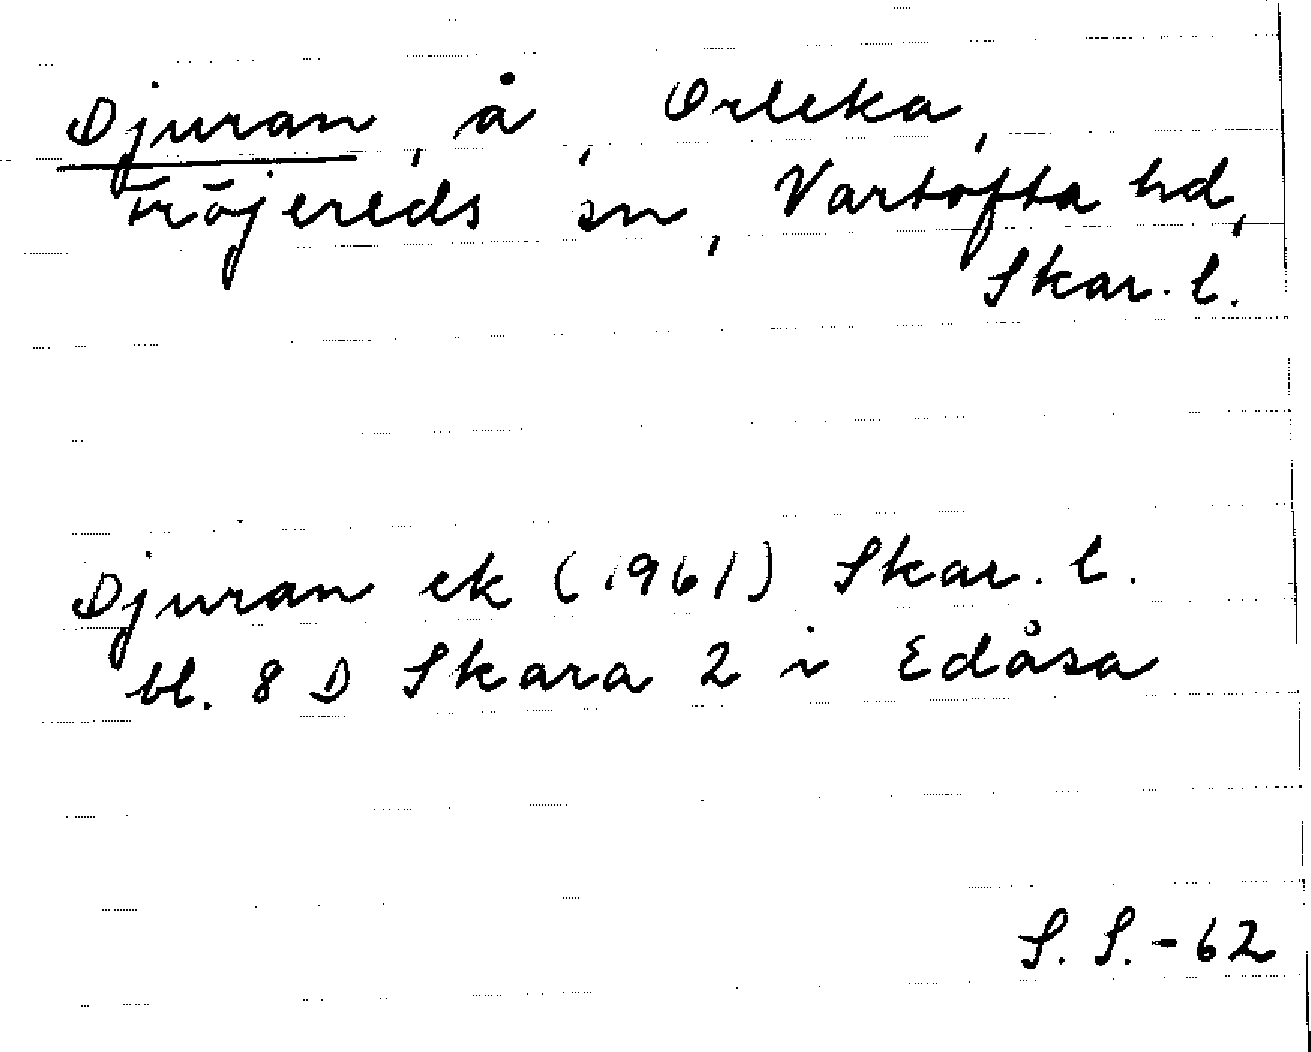 Djuran, å, Orleka,
Tröjereds sn, Vartofta hd,
Skar. l.
Djuran ek (1961) Skar. l.
bl. 8 D Skara 2 i Edåsa
S. S. - 62